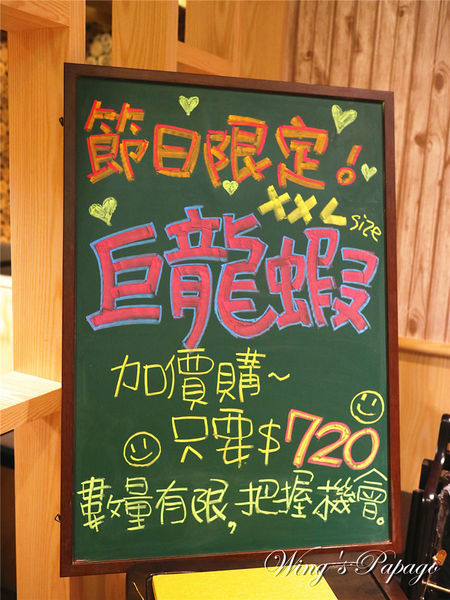 節日限定!
XXL size
巨龍蝦
加價購~
只要$720
數量有限,把握機會。
Wing's Papago